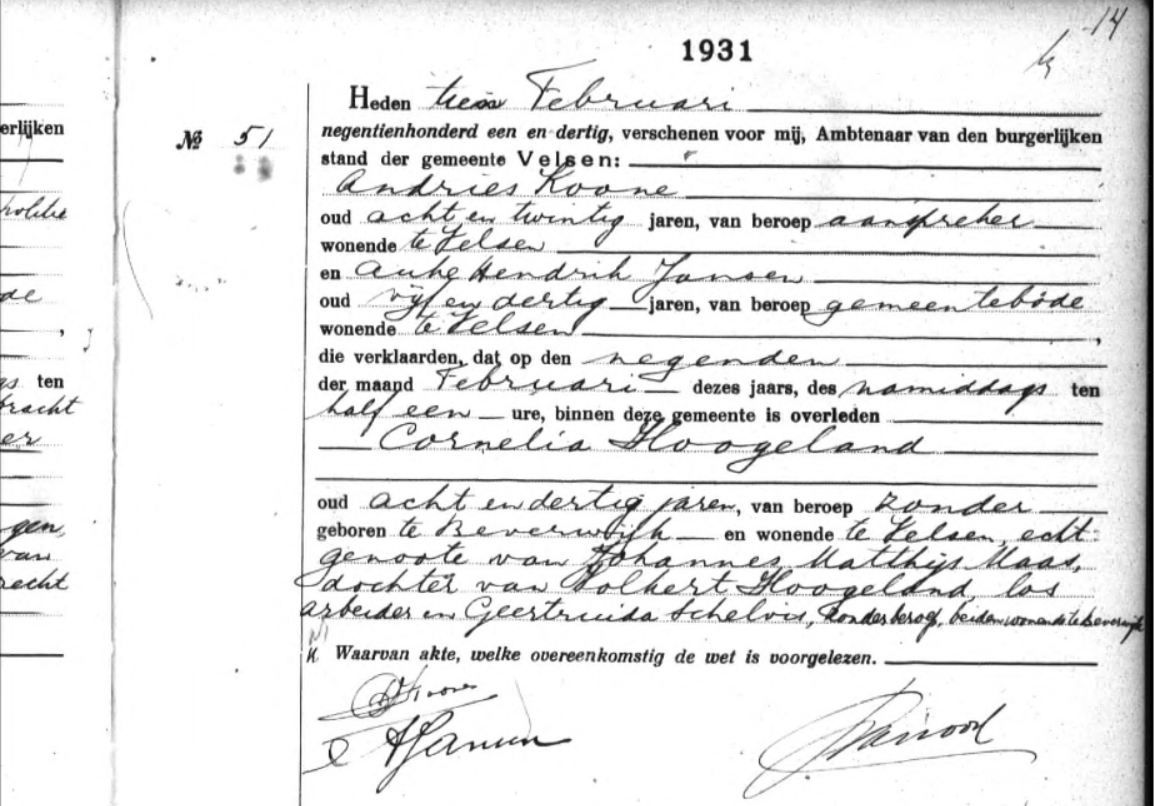 14
1931
erlijken
politie
de
ten
bracht
er
gen,
van
recht
№ 51
Heden tien Februari
negentienhonderd een en dertig, verschenen voor mij, Ambtenaar van den burgerlijken
stand der gemeente Velsen:
Andries Koone
oud acht en twintig jaren, van beroep aanspreker
wonende te Velsen
en Auke Hendrik Jansen
oud vijf en dertig jaren, van beroep gemeentebode
wonende te Velsen,
die verklaarden, dat op den negenden
der maand Februari dezes jaars, des namiddags ten
half een ure, binnen deze gemeente is overleden
Cornelia Hoogeland
oud acht en dertig jaren, van beroep zonder
geboren te Beverwijk en wonende te Velsen, echt-
genoote van Johannes Matthijs Maas,
dochter van Volkert Hoogeland, los
arbeider en Geertruida Schelvis, zonder beroep, beiden wonende te Beverwijk
Waarvan akte, welke overeenkomstig de wet is voorgelezen.
AKoone
AHJansen